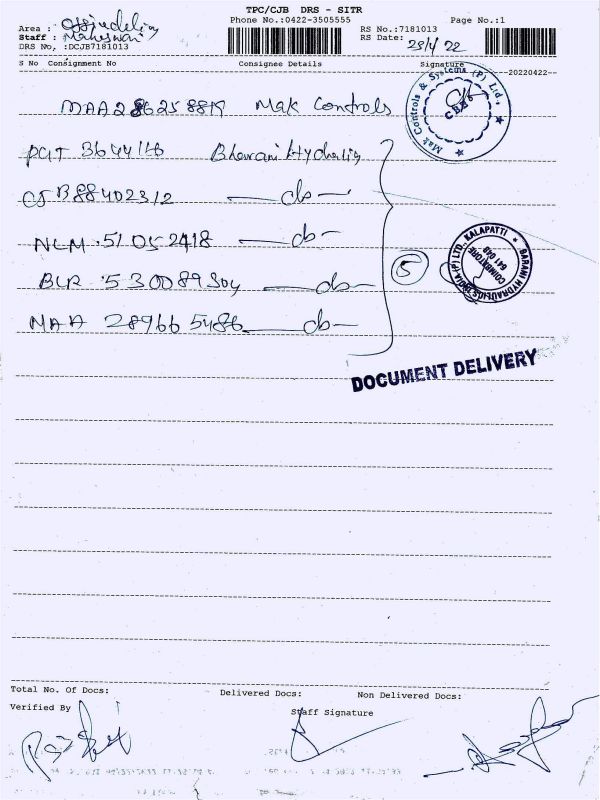 TPC/CJB DRS - SITR
Phone No.:0422-3505555
Page No.:1
Area : Office delivery
Staff : Maheswari
DRS No, :DCJB7181013
RS No.:7181013
RS Date: 28/4/22
S No Consignment No Consignee Details Signature
--20220422--
MAA 286258819 Mak Controls
Mak Controls & Systems (P) Ltd.,
CBE
PGT 3644116 Bharani Hydralig
CJB 88402312 —do—
NLM 51052418 —do—
BLR 530089304 —do—
MAA 289665486 —do—
5
BARANI HYDRAULICS INDIA (P) LTD., KALAPATTI
COIMBATORE
641 048
DOCUMENT DELIVERY
Total No. Of Docs: Delivered Docs: Non Delivered Docs:
Verified By Staff Signature